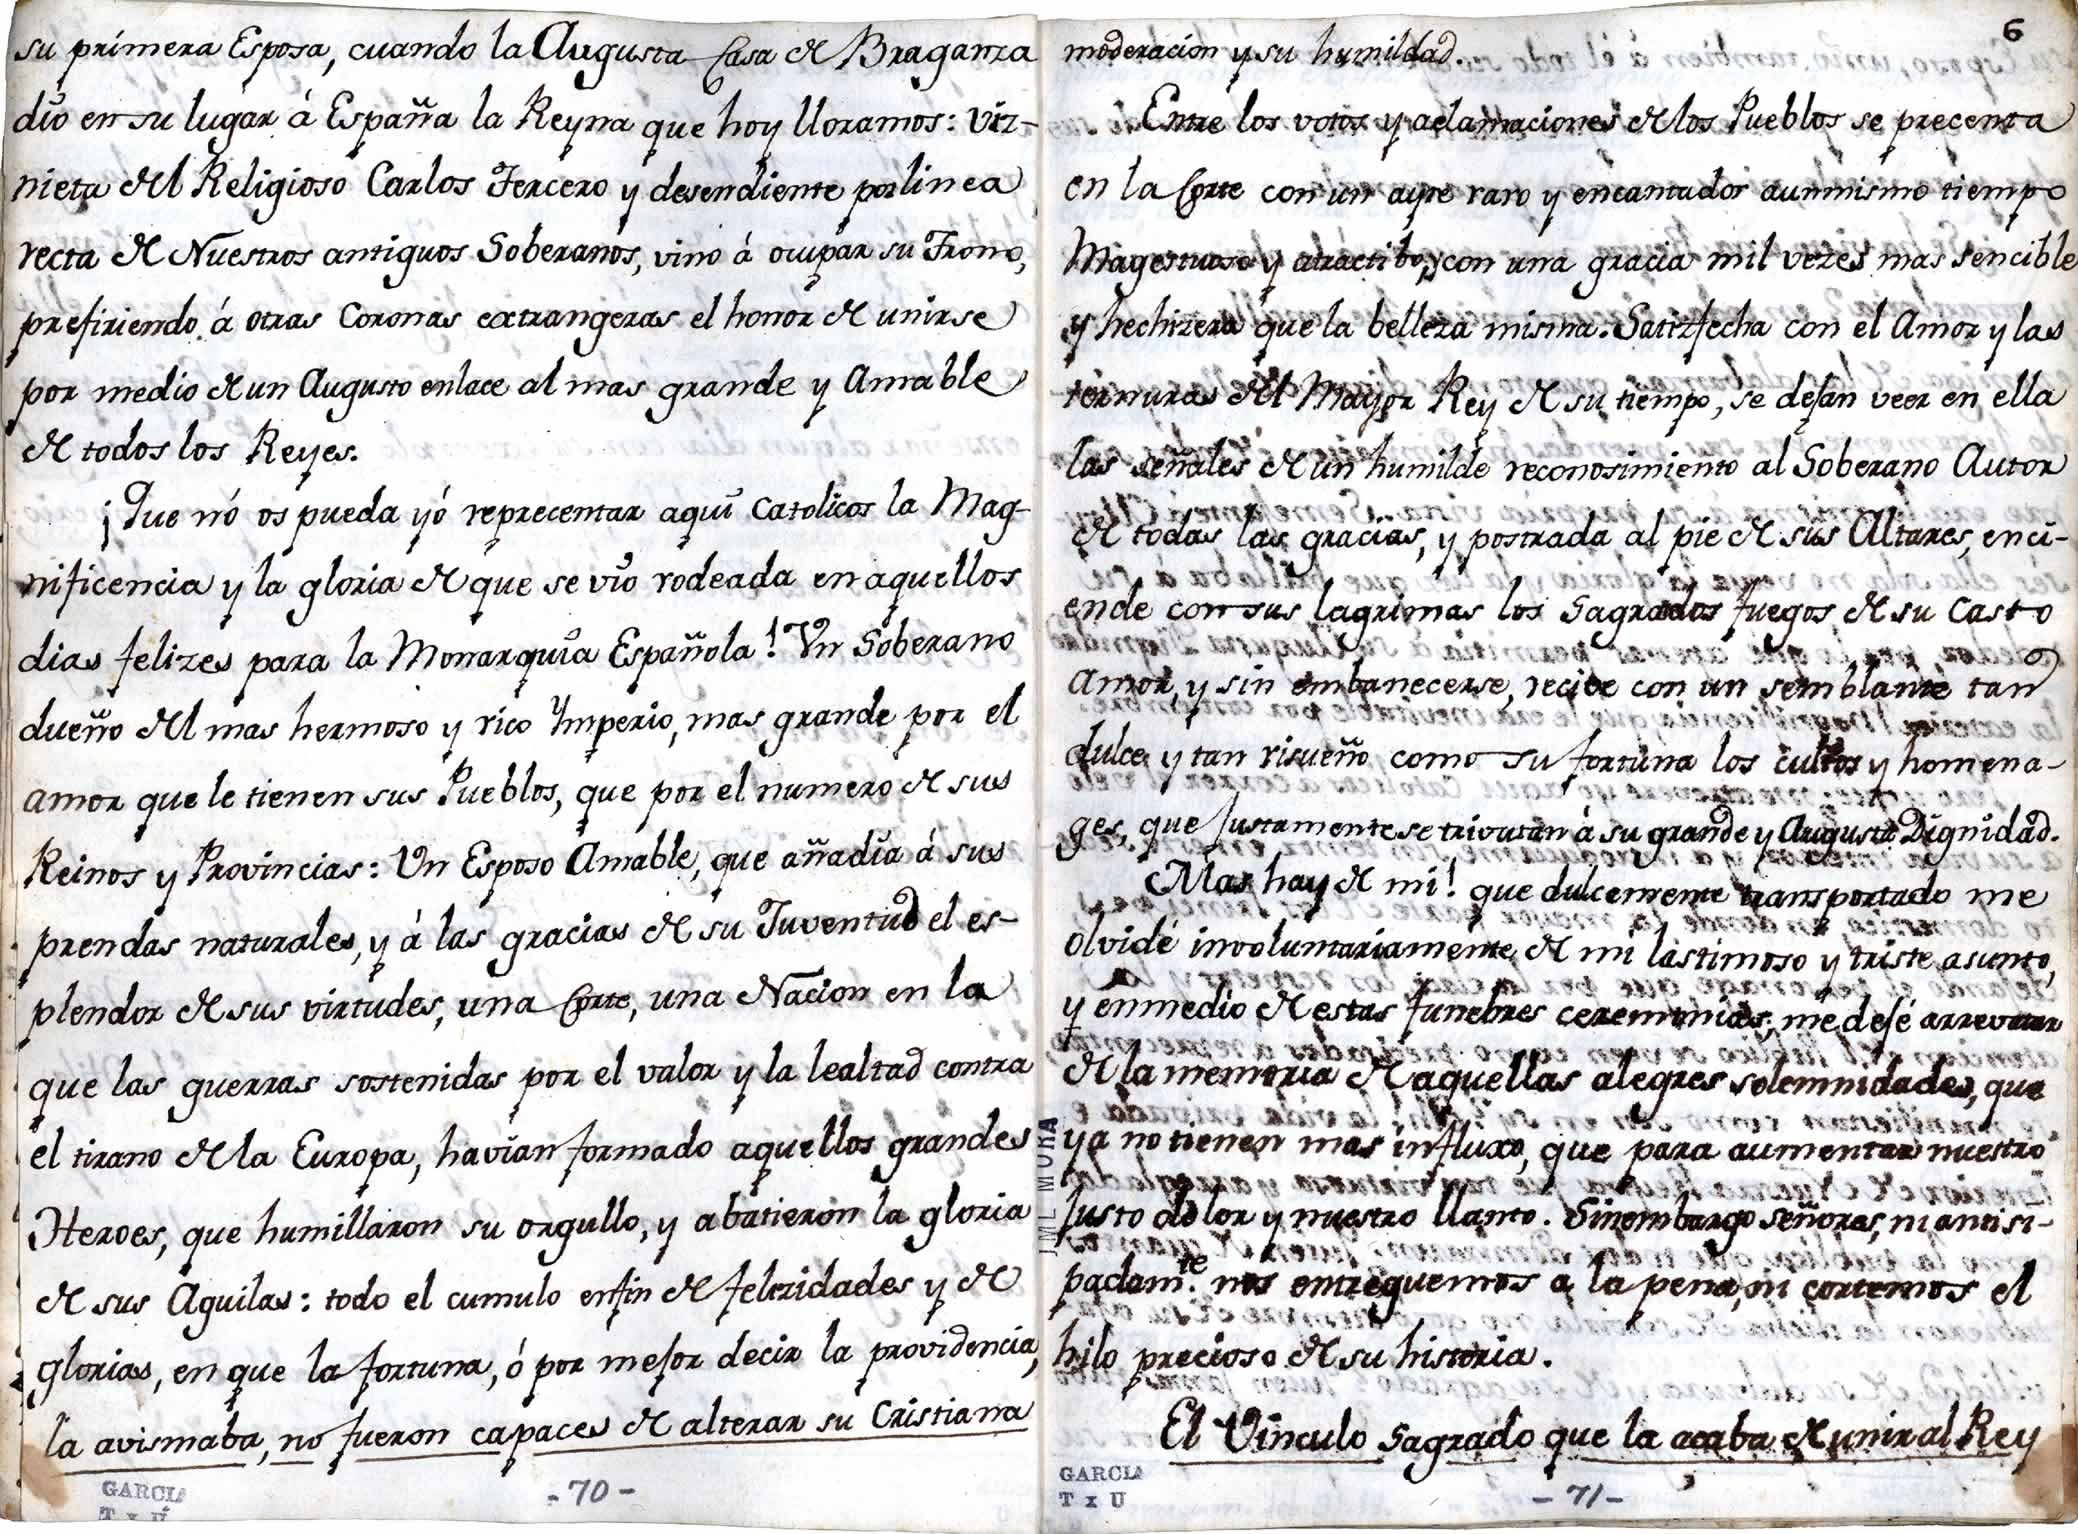 su primera Esposa, cuando la Augusta Casa de Braganza
dió en su lugar á España la Reyna que hoy lloramos: viz-
nieta del Religioso Carlos Tercero y desendiente por linea
recta de Nuestros antiguos Soberanos, vino á ocupar su Trono,
prefiriendo á otras Coronas extrangeras el honor de unirse
por medio de un Augusto enlace al mas grande y Amable
de todos los Reyes.
¡Que nó os pueda yó reprecentar aqui Catolicos la Mag-
nificencia y la gloria de que se vió rodeada en aquellos
dias felizes para la Monarquia Española! Vn Soberano
dueño del mas hermoso y rico Ymperio, mas grande por el
amor que le tienen sus Pueblos, que por el numero de sus
Reinos y Provincias: Vn Esposo Amable, que añadia á sus
prendas naturales, y á las gracias de su Juventud el es-
plendor de sus virtudes, una Corte, una Nacion en la
que las guerras sostenidas por el valor y la lealtad contra
el tirano de la Europa, havian formado aquellos grandes
Heroes, que humillaron su orgullo, y abatieron la gloria
de sus Aguilas: todo el cumulo enfin de felizidades y de
glorias, en que la fortuna, ó por mejor decir la providencia,
la avismaba, no fueron capaces de alterar su Cristiana
GARCIA
T x U
-70-
6
moderacion y su humildad.
Entre los votos y aclamaciones de los Pueblos se precenta
en la Corte con un ayre raro y encantador aunmismo tiempo
Magestuoso y atractibo, y con una gracia mil vezes mas sencible
y hechizera que la belleza misma. Satizfecha con el Amor y las
ternuras del Mayor Rey de su tiempo, se dejan veer en ella
las señales de un humilde reconosimiento al Soberano Autor
de todas las gracias, y postrada al pie de sus Altares, enci-
ende con sus lagrimas los Sagrados fuegos de su Casto
Amor, y sin embanecerse, recibe con un semblante tan
dulce y tan risueño como su fortuna los cultos y homena-
ges, que Justamente se trivutan á su grande y Augusta Dignidad.
Mas hay de mi! que dulcemente transportado me
olvidé involuntariamente de mi lastimoso y triste asunto,
y enmedio de estas funebres ceremonias, me dejé arrevatar
de la memoria de aquellas alegres solemnidades, que
ya no tienen mas influxo, que para aumentar nuestro
Justo dolor y nuestro llanto. Sinembargo señores, ni antisi-
padam.te nos entreguemos á la pena, ni cortemos el
hilo precioso de su historia.
El Vinculo Sagrado que la acaba de unir al Rey
JML MORA
GARCIA
T x U
-71-